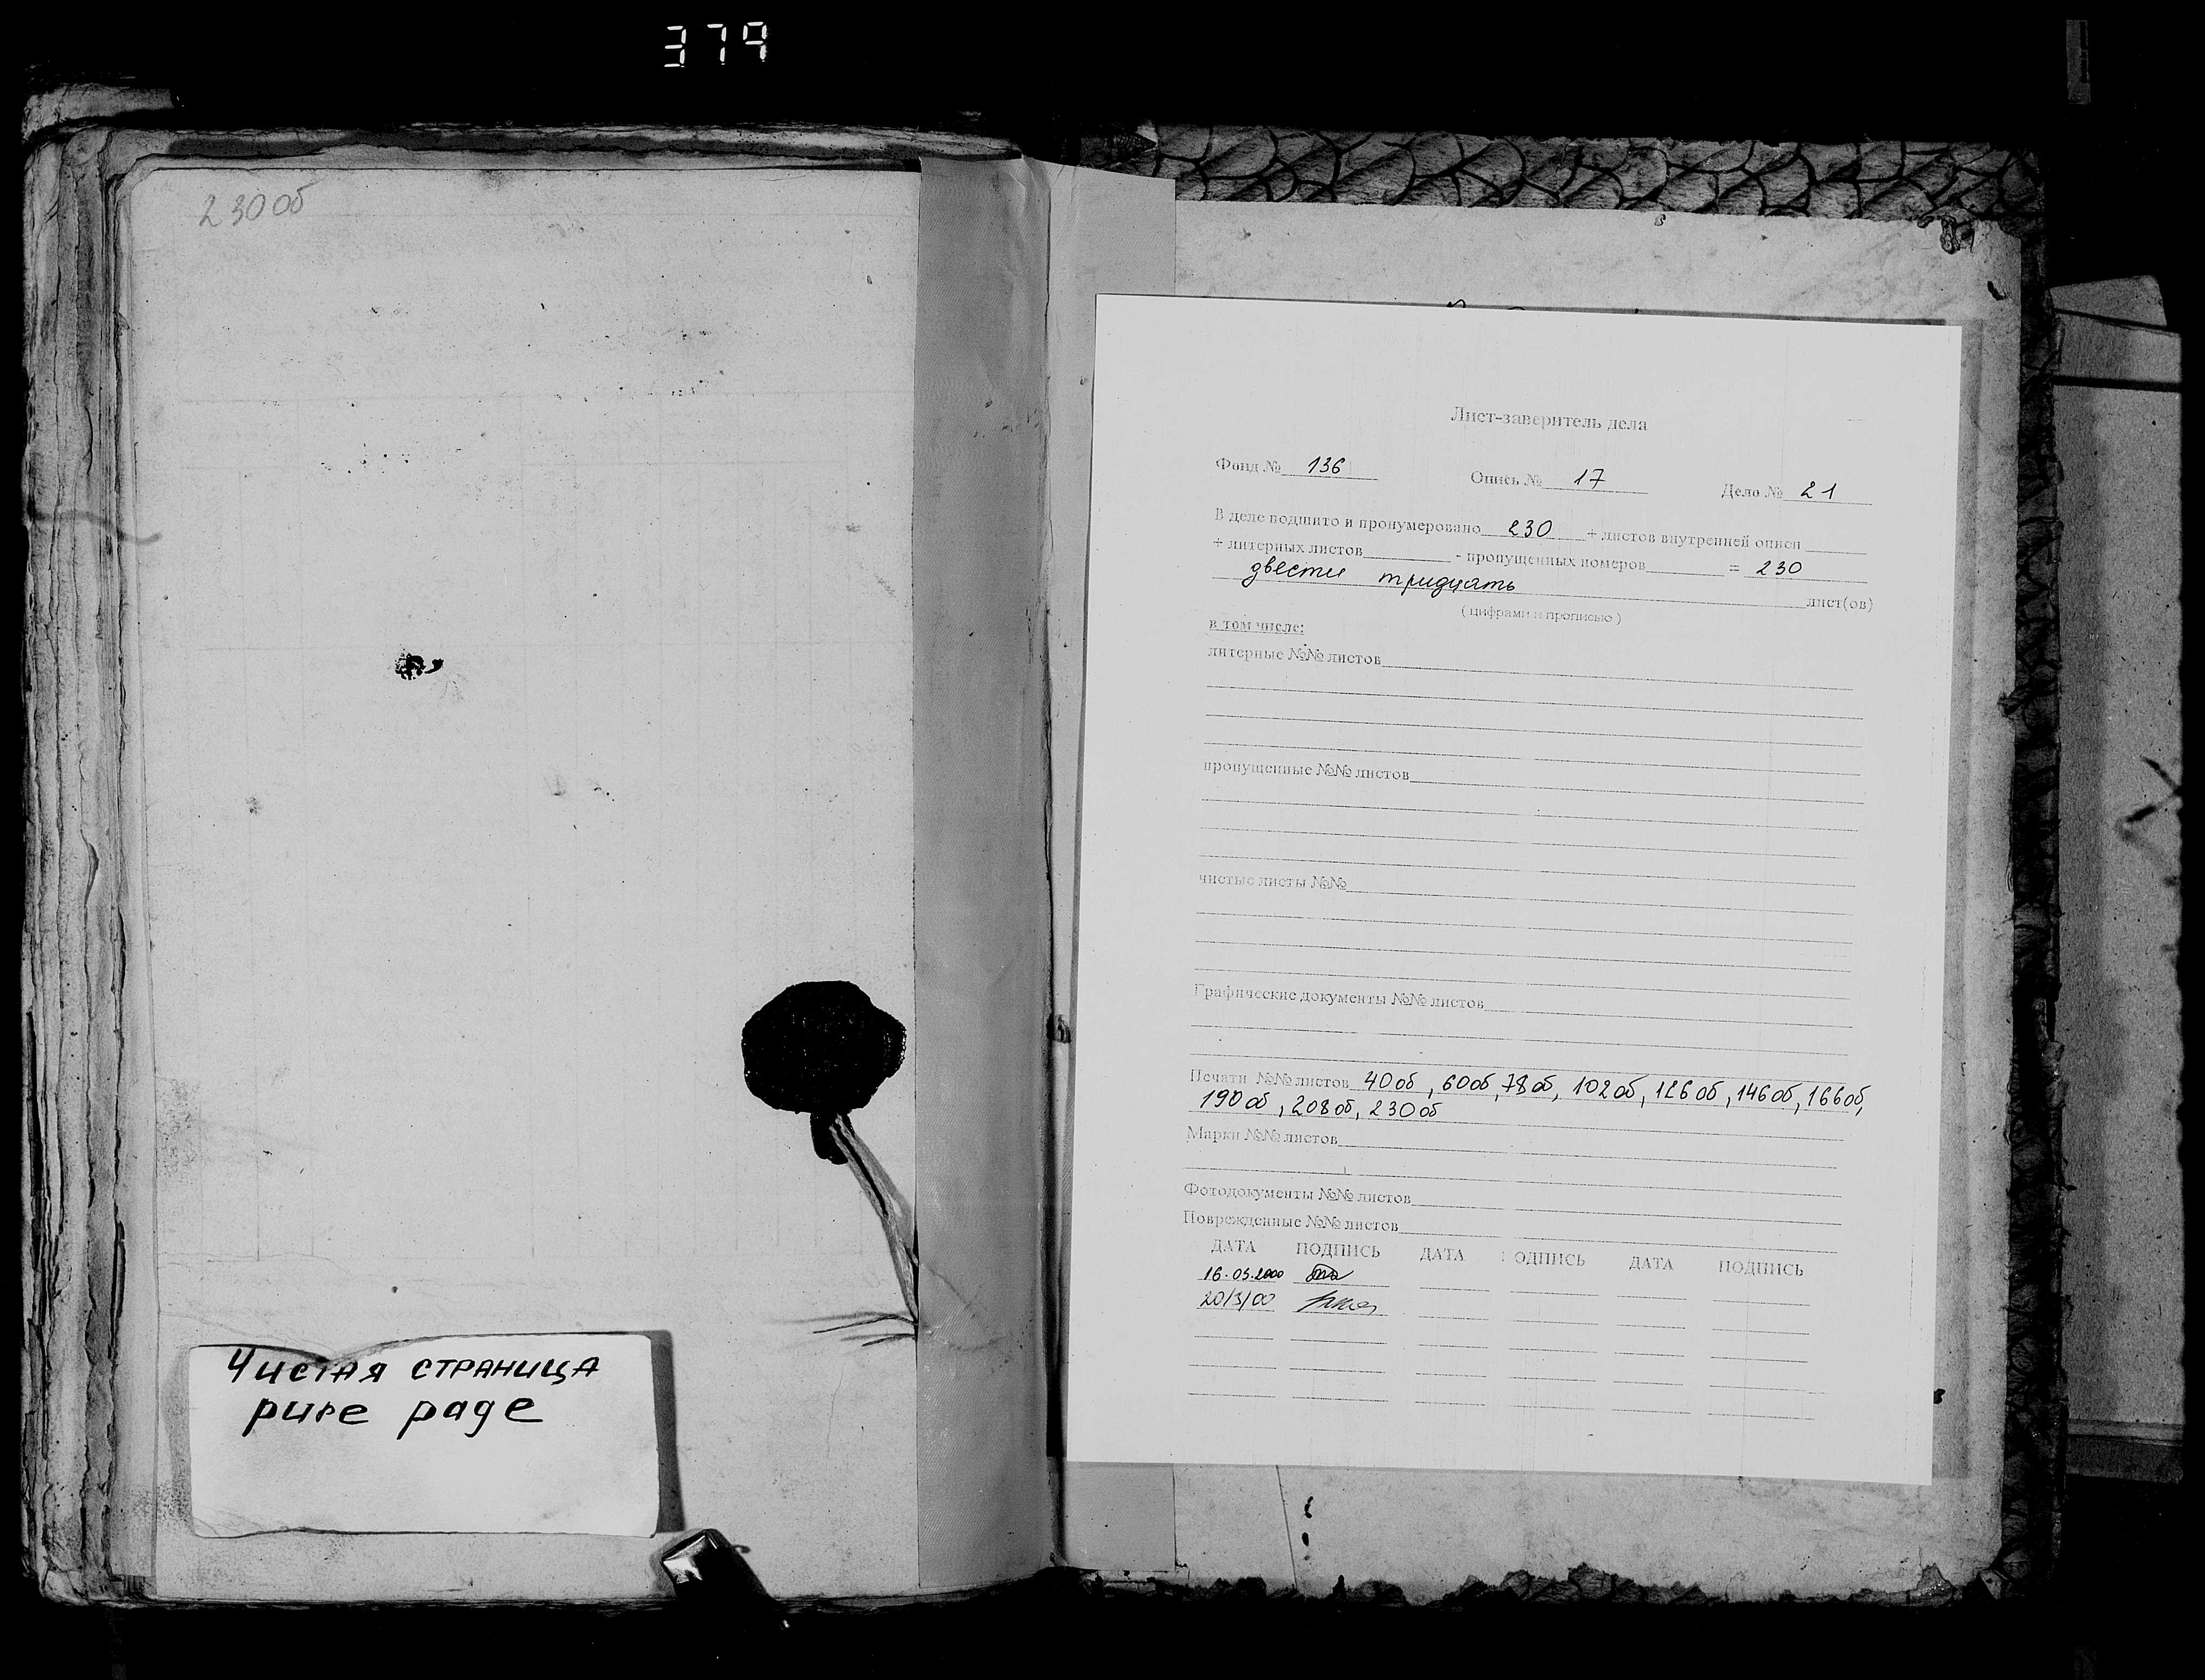 379
230об
Чистая страница
pure page
Лист-заверитель дела
Фонд № 136 Опись № 17 Дело № 21
В деле подшито и пронумеровано 230 + листов внутренней описи
+ литерных листов - пропущенных номеров = 230
двести тридцать лист(ов)
( цифрами и прописью )
в том числе:
литерные №№ листов
пропущенные №№ листов
чистые листы №№
Графические документы №№ листов
Печати №№ листов 40об, 60об, 78об, 102об, 126об, 146об, 166об,
190об, 208об, 230об
Марки №№ листов
Фотодокументы №№ листов
Поврежденные №№ листов
ДАТА ПОДПИСЬ ДАТА ПОДПИСЬ ДАТА ПОДПИСЬ
16.03.2000
20/3/00